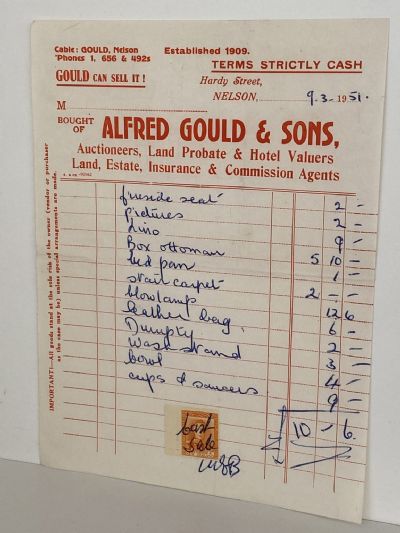 Cable: GOULD, Nelson
'Phones 1, 656 & 492s
GOULD CAN SELL IT!
Established 1909.
TERMS STRICTLY CASH
Hardy Street,
NELSON, 9.3.1951.
M
BOUGHT OF ALFRED GOULD & SONS,
Auctioneers, Land Probate & Hotel Valuers
Land, Estate, Insurance & Commission Agents
fireside seat 2 -
pictures 2 -
Lino 9 -
Box ottoman 5 10 -
bed pan 1 -
stair carpet 2 - -
blowlamp 12 6
leather bag 6 -
Dumpty 2 -
Wash stand 3 -
bowl 4 -
cups & saucers 9 -
£ 10 - 6
Sale
IMPORTANT!—All goods stand at the sole risk of the owner (vendor or purchaser
as the case may be) unless special arrangements are made.